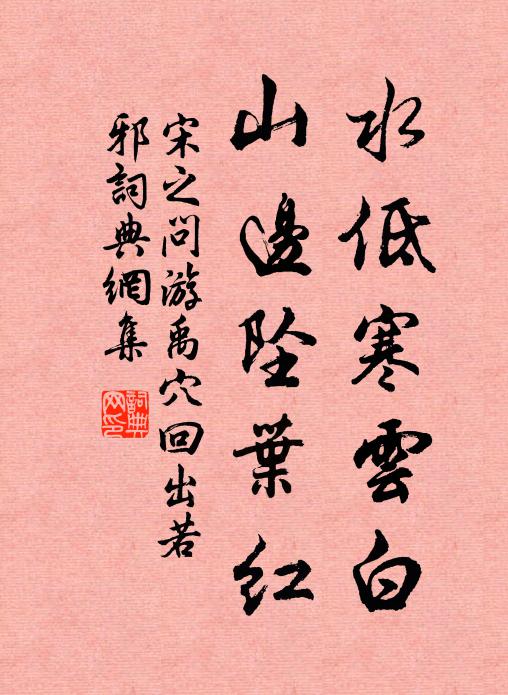 水低寒雲白
山邊墜葉紅
宋之問游禹穴回出若
邪詞典網集
詞典
网印